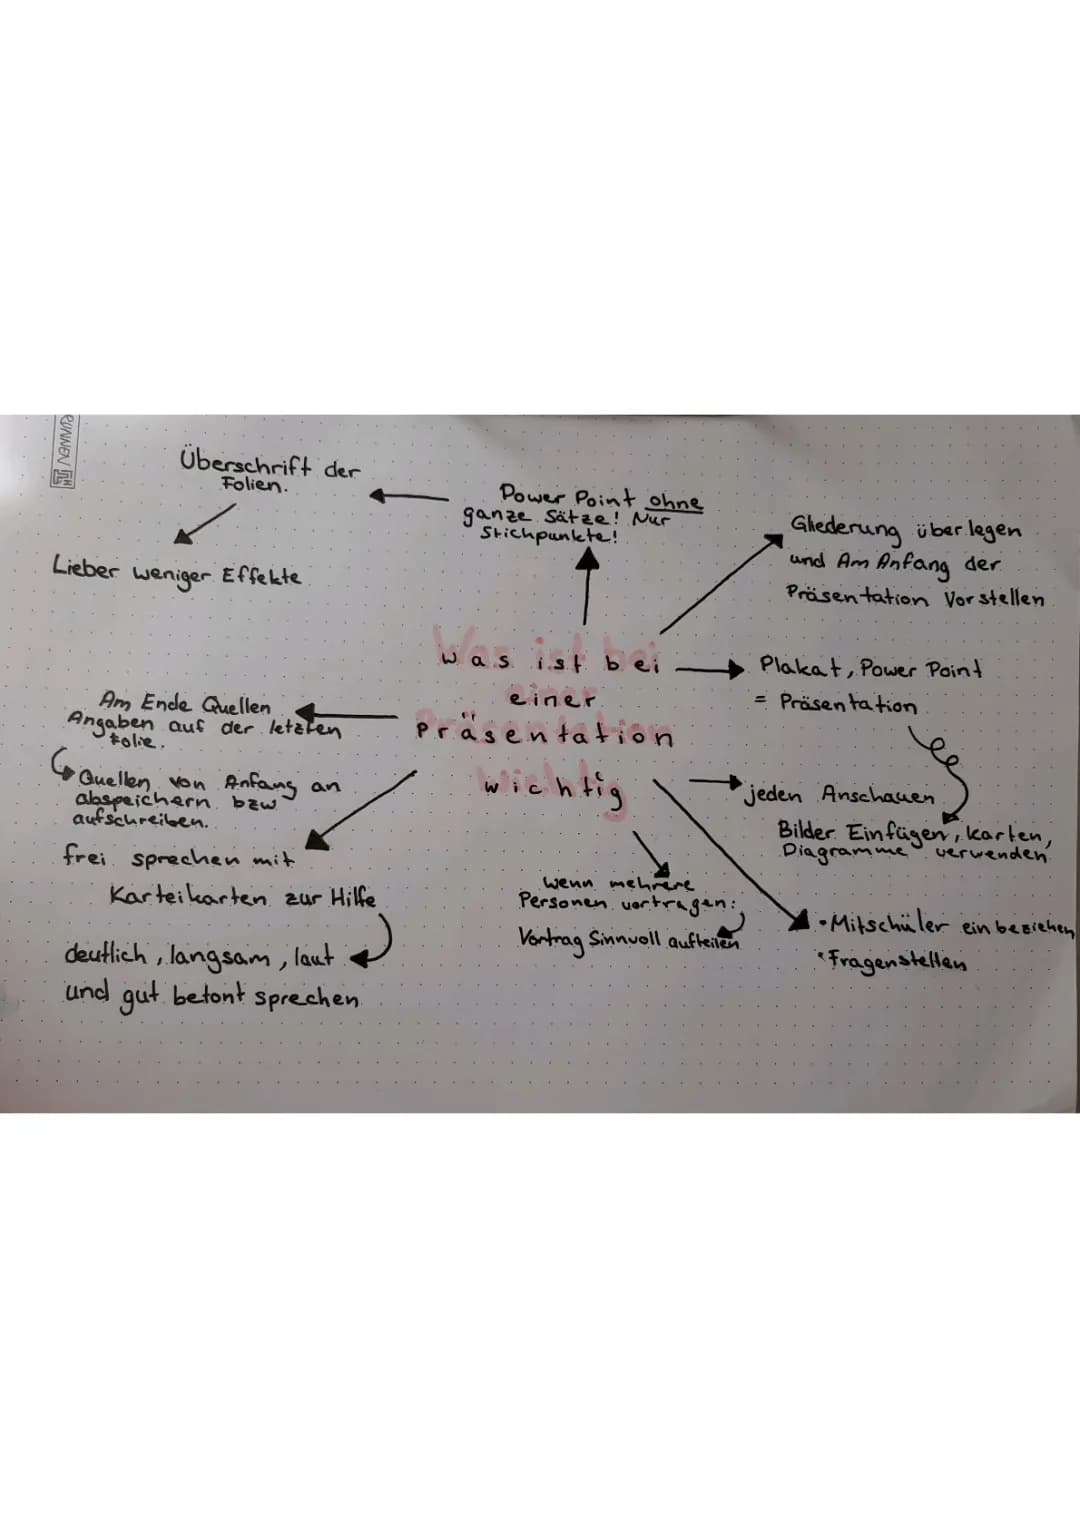 RUNNEN
Überschrift der
Folien.
Lieber weniger Effekte
Power Point ohne
ganze Sätze! Nur
Stichpunkte!
Gliederung überlegen
und Am Anfang der
Präsentation Vorstellen
Was ist bei
einer
Präsentation
wichtig
Plakat, Power Point
= Präsentation
jeden Anschauen
Bilder Einfügen, karten,
Diagramme verwenden
• Mitschüler einbeziehen
• Fragenstellen
wenn mehrere
Personen vortragen:
Vortrag Sinnvoll aufteilen
Am Ende Quellen
Angaben auf der letzten
Folie.
Quellen von Anfang an
abspeichern bzw
aufschreiben.
frei sprechen mit
Karteikarten zur Hilfe
deutlich, langsam, laut
und gut betont sprechen